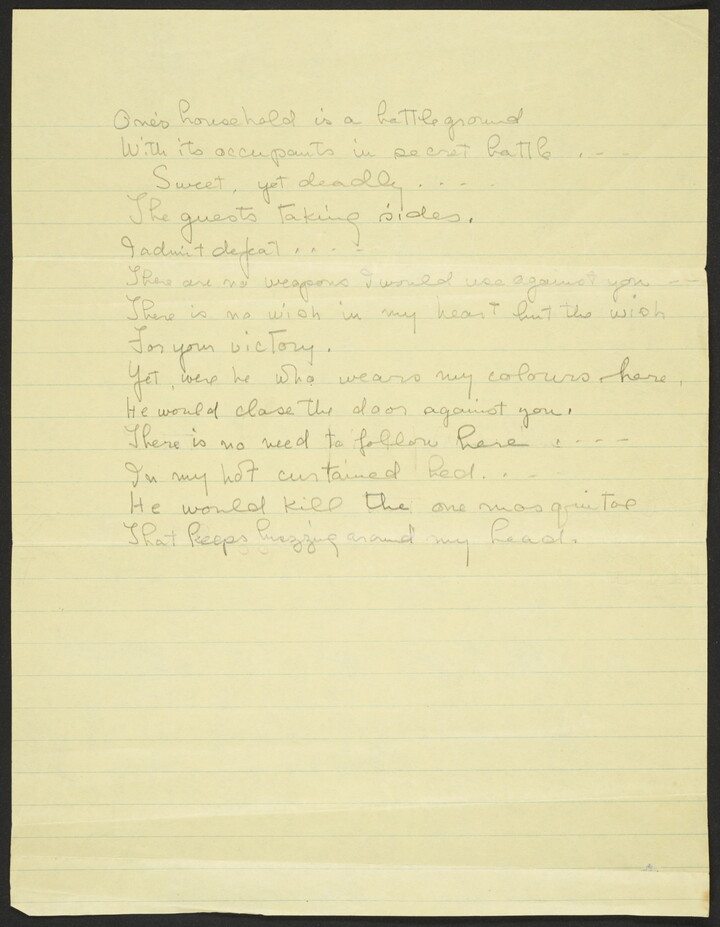 One's household is a battleground
With its occupants in secret battle . - -
Sweet, yet deadly . . . .
The guests taking sides.
I admit defeat . . . . -
There are no weapons I would use against you - -
There is no wish in my heart but the wish
For your victory.
Yet, were he who wears my colours here,
He would close the door against you.
There is no need to follow here . - - -
In my hot curtained bed. . -
He would kill the one mosquitoe
That keeps buzzing around my head.